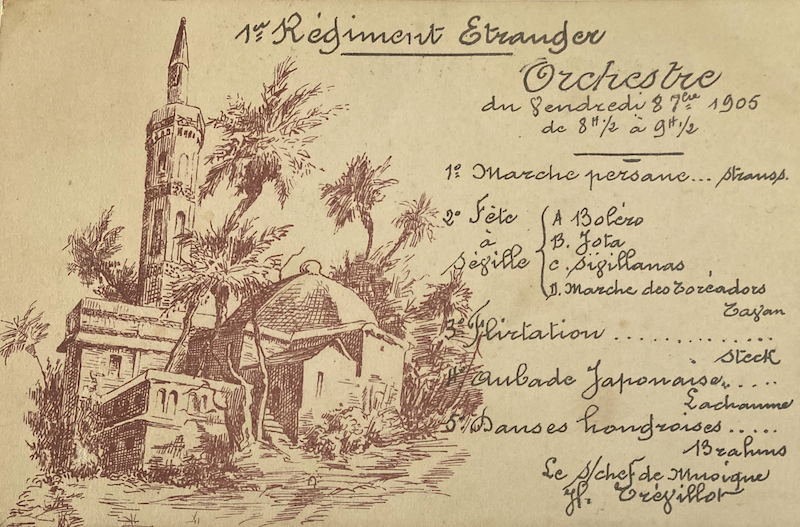 1er Régiment Etranger
Orchestre
du Vendredi 8 7bre 1905
de 8H1/2 à 9H1/2
1º Marche persane... Strauss.
2º Fête à Séville
A Boléro
B. Jota
C. Sévillanas
D. Marche des Toréadors
Tavan
3º Flirtation ..............
Steck
4º Aubade Japonaise.....
Lachaume
5º Danses hongroises.....
Brahms
Le s/chef de Musique
H. Trévillot